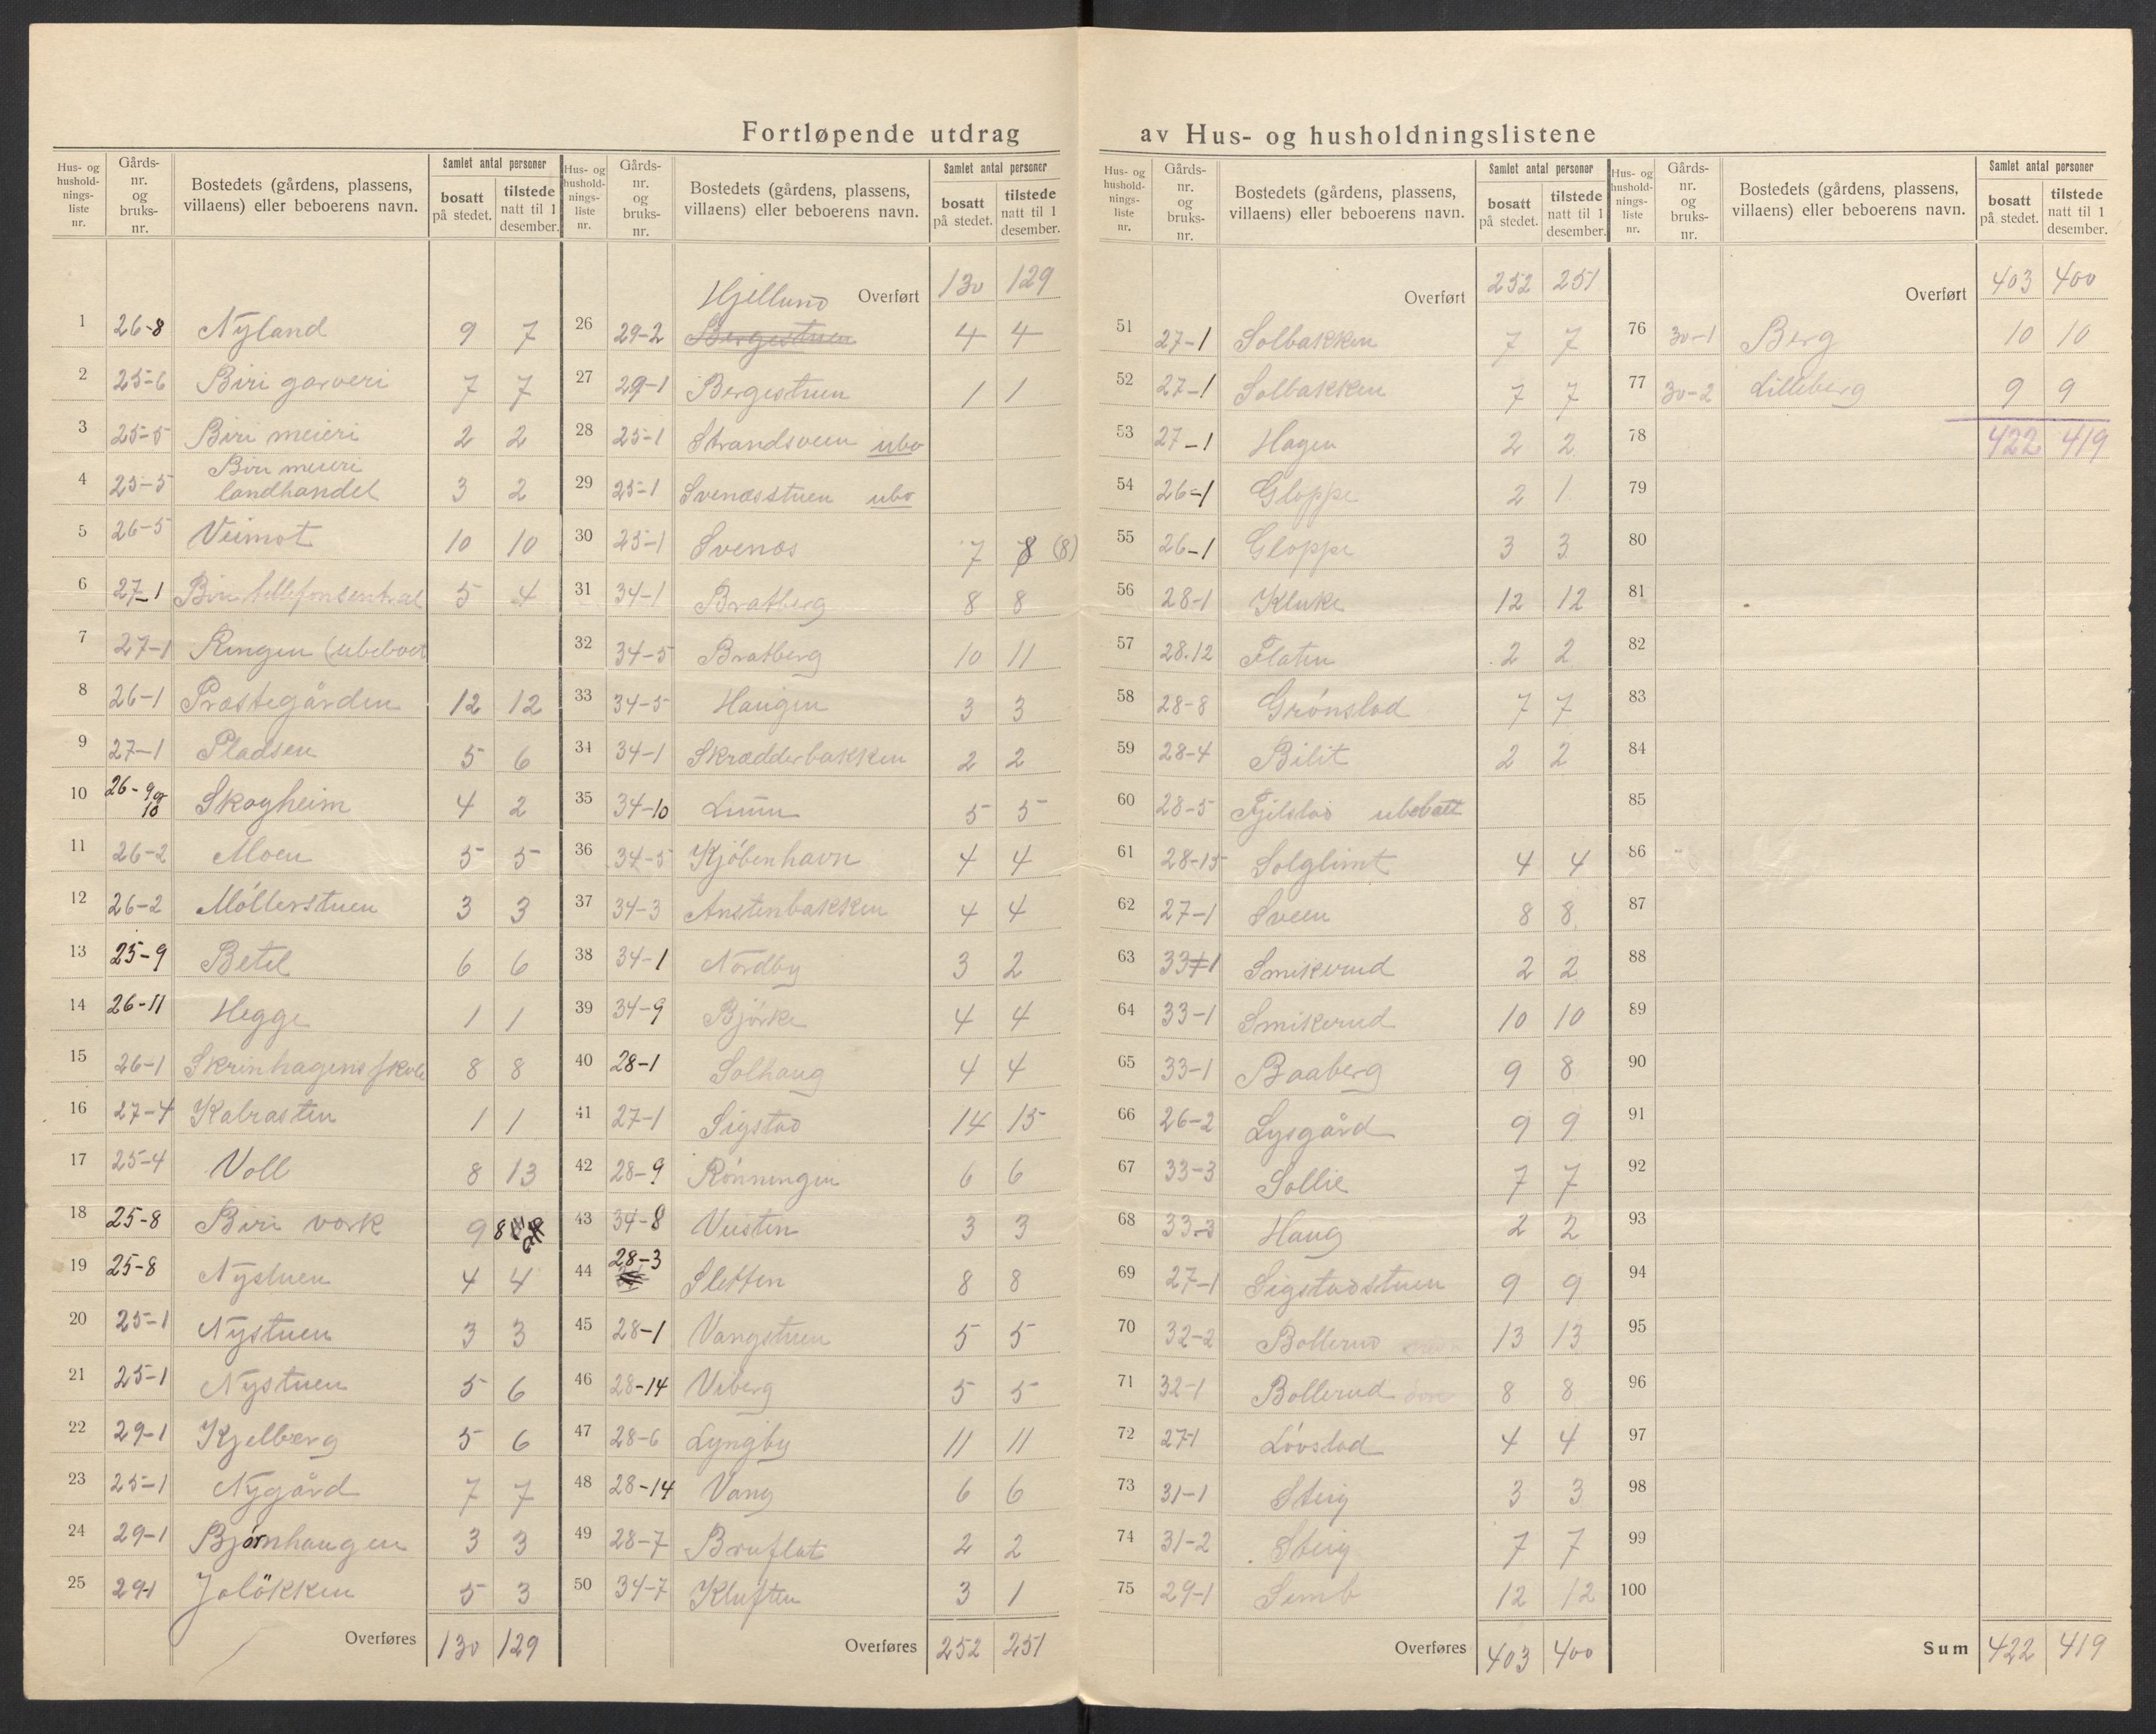 Fortløpende utdrag av Hus- og husholdningslistene
Hus- og husholdnings-liste nr. | Gårds-nr. og bruks-nr. | Bostedets (gårdens, plassens, villaens) eller beboerens navn. | Samlet antal personer | bosatt på stedet. | tilstede natt til 1 desember.
1 26-8 Nyland 9 7
2 25-6 Biri garveri 7 7
3 25-5 Biri meieri 2 2
4 25-5 Biri meieri landhandel 3 2
5 26-5 Veimot 10 10
6 27-1 Biri tellefonsentral 5 4
7 27-1 Ringen (ubeboet
8 26-1 Præstegården 12 12
9 27-1 Pladsen 5 6
10 26-9 og 10 Skogheim 4 2
11 26-2 Moen 5 5
12 26-2 Möllerstuen 3 3
13 25-9 Betel 6 6
14 26-11 Hegge 1 1
15 26-1 Skrinhagens skole 8 8
16 27-4 Kalrasten 1 1
17 25-4 Voll 8 13
18 25-8 Biri værk 9 8
19 25-8 Nystuen 4 4
20 25-1 Nystuen 3 3
21 25-1 Nystuen 5 6
22 29-1 Kjelberg 5 6
23 25-1 Nygård 7 7
24 29-1 Bjørnhaugen 3 3
25 29-1 Jolökken 5 3
Overføres 130 129
Hus- og husholdnings-liste nr. | Gårds-nr. og bruks-nr. | Bostedets (gårdens, plassens, villaens) eller beboerens navn. | Samlet antal personer | bosatt på stedet. | tilstede natt til 1 desember.
Overført 130 129
Hjellund
26 29-2 Bergestuen 4 4
27 29-1 Bergestuen 1 1
28 25-1 Strandsveen ubo
29 25-1 Svenæsstuen ubo
30 25-1 Svenæs 7 8 (8)
31 34-1 Bratberg 8 8
32 34-5 Bratberg 10 11
33 34-5 Haugen 3 3
34 34-1 Skrædderbakken 2 2
35 34-10 5 5
36 34-5 Kjöbenhavn 4 4
37 34-3 Anstenbakken 4 4
38 34-1 Nordby 3 2
39 34-9 Björke 4 4
40 28-1 Solhaug 4 4
41 27-1 Sigstad 14 15
42 28-9 Rönningen 6 6
43 34-8 Veisten 3 3
44 28-3 Sletten 8 8
45 28-1 Vangstuen 5 5
46 28-14 Viberg 5 5
47 28-6 Lyngby 11 11
48 28-14 Vang 6 6
49 28-7 Bruflat 2 2
50 34-7 Kluften 3 1
Overføres 252 251
Hus- og husholdnings-liste nr. | Gårds-nr. og bruks-nr. | Bostedets (gårdens, plassens, villaens) eller beboerens navn. | Samlet antal personer | bosatt på stedet. | tilstede natt til 1 desember.
Overført 252 251
51 27-1 Solbakken 7 7
52 27-1 Solbakken 7 7
53 27-1 Hagen 2 2
54 26-1 Gloppe 2 1
55 26-1 Gloppe 3 3
56 28-1 Kluke 12 12
57 28.12 Flaten 2 2
58 28-8 Grönslad 7 7
59 28-4 Bilit 2 2
60 28-5 Fjelstad ubebott
61 28-15 Solglimt 4 4
62 27-1 Sveen 8 8
63 33-1 Smikerud 2 2
64 33-1 Smikerud 10 10
65 33-1 Baaberg 9 8
66 26-2 Lysgård 9 9
67 33-3 Sollie 7 7
68 33-3 Haug 2 2
69 27-1 Sigstadstuen 9 9
70 32-2 Bollerud 13 13
71 32-1 Bollerud 8 8
72 27-1 Lövstad 4 4
73 31-1 Steig 3 3
74 31-2 Steig 7 7
75 29-1 Semb 12 12
Overføres 403 400
Hus- og husholdnings-liste nr. | Gårds-nr. og bruks-nr. | Bostedets (gårdens, plassens, villaens) eller beboerens navn. | Samlet antal personer | bosatt på stedet. | tilstede natt til 1 desember.
Overført 403 400
76 30-1 Berg 10 10
77 30-2 Lilleberg 9 9
78 422 419
79
80
81
82
83
84
85
86
87
88
89
90
91
92
93
94
95
96
97
98
99
100
Sum 422 419